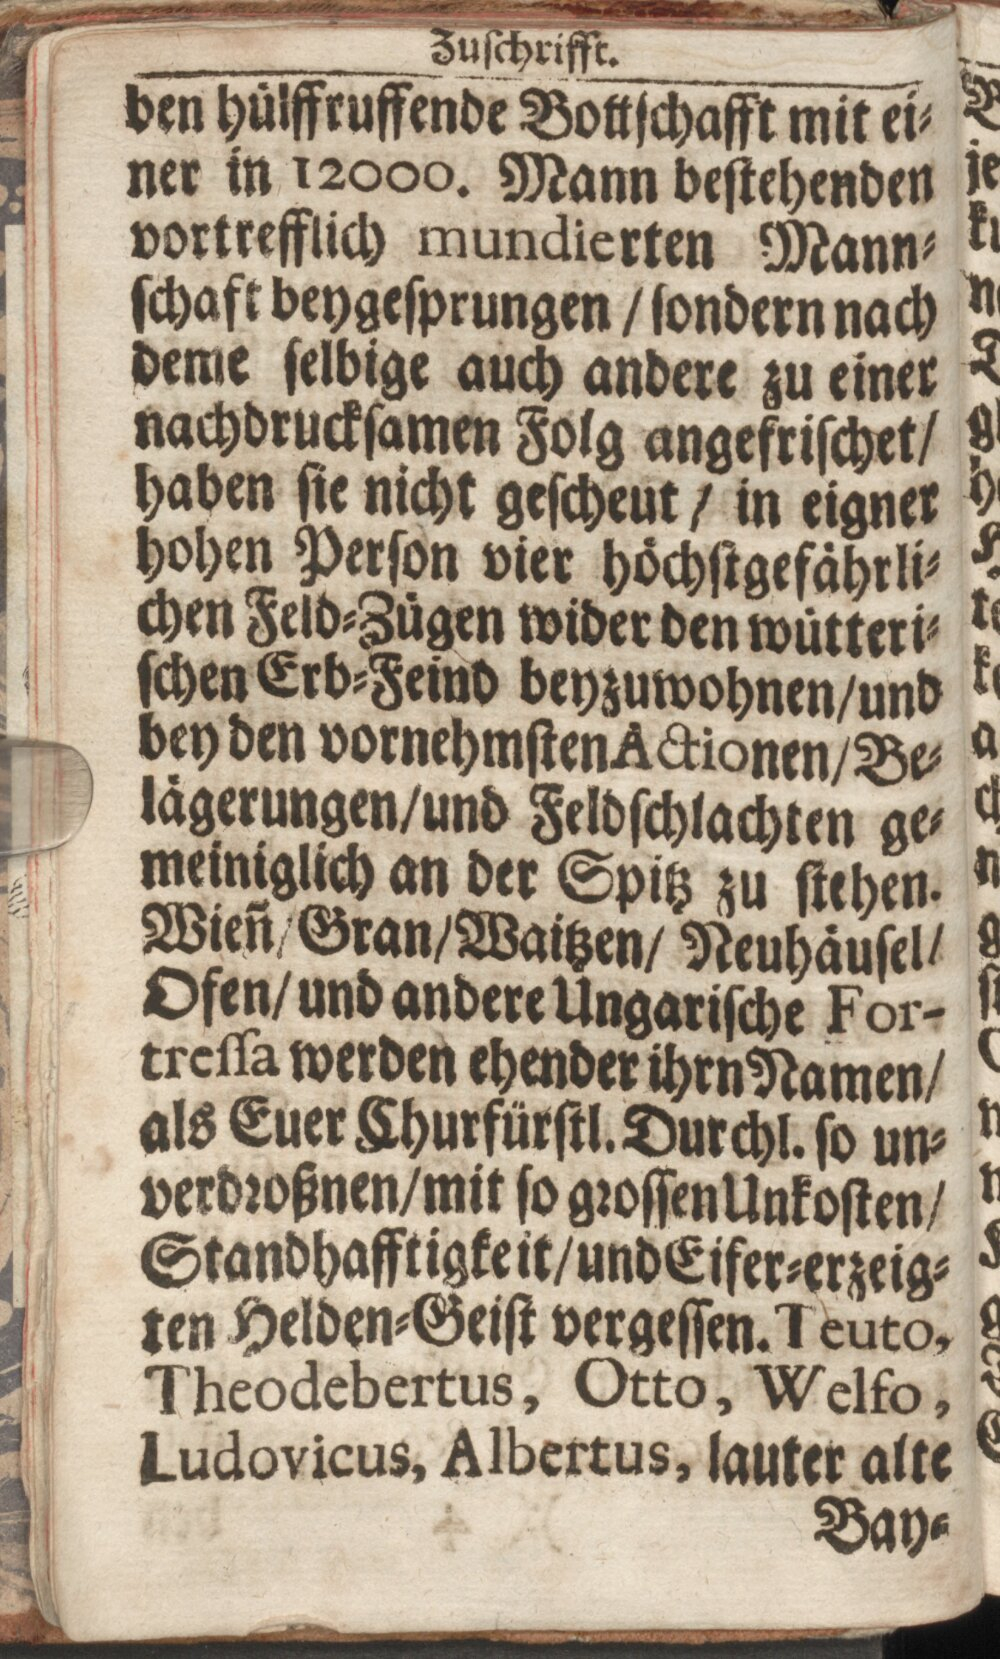 Zuſchrifft.
ben hülffruffende Bottſchafft mit ei⸗
ner in 12000. Mann beſtehenden
vortrefflich mundierten Mann⸗
ſchaft beygeſprungen / ſondern nach
deme ſelbige auch andere zu einer
nachdruckſamen Folg angefriſchet /
haben ſie nicht geſcheut / in eigner
hohen Perſon vier höchſtgefährli⸗
chen Feld⸗Zügen wider den wütteri⸗
ſchen Erb⸗Feind beyzuwohnen / und
bey den vornehmſten Actionen / Be⸗
lägerungen / und Feldſchlachten ge⸗
meiniglich an der Spitz zu ſtehen.
Wieñ / Gran / Waitzen / Neuhäuſel /
Ofen / und andere Ungariſche For-
treſſa werden ehender ihrn Namen /
als Euer Churfürſtl. Durchl. ſo un⸗
verdroßnen / mit ſo groſſen Unkoſten /
Standhafftigkeit / und Eifer⸗erzeig⸗
ten Helden⸗Geiſt vergeſſen. Teuto,
Theodebertus, Otto, Welfo,
Ludovicus, Albertus, lauter alte
Bay⸗